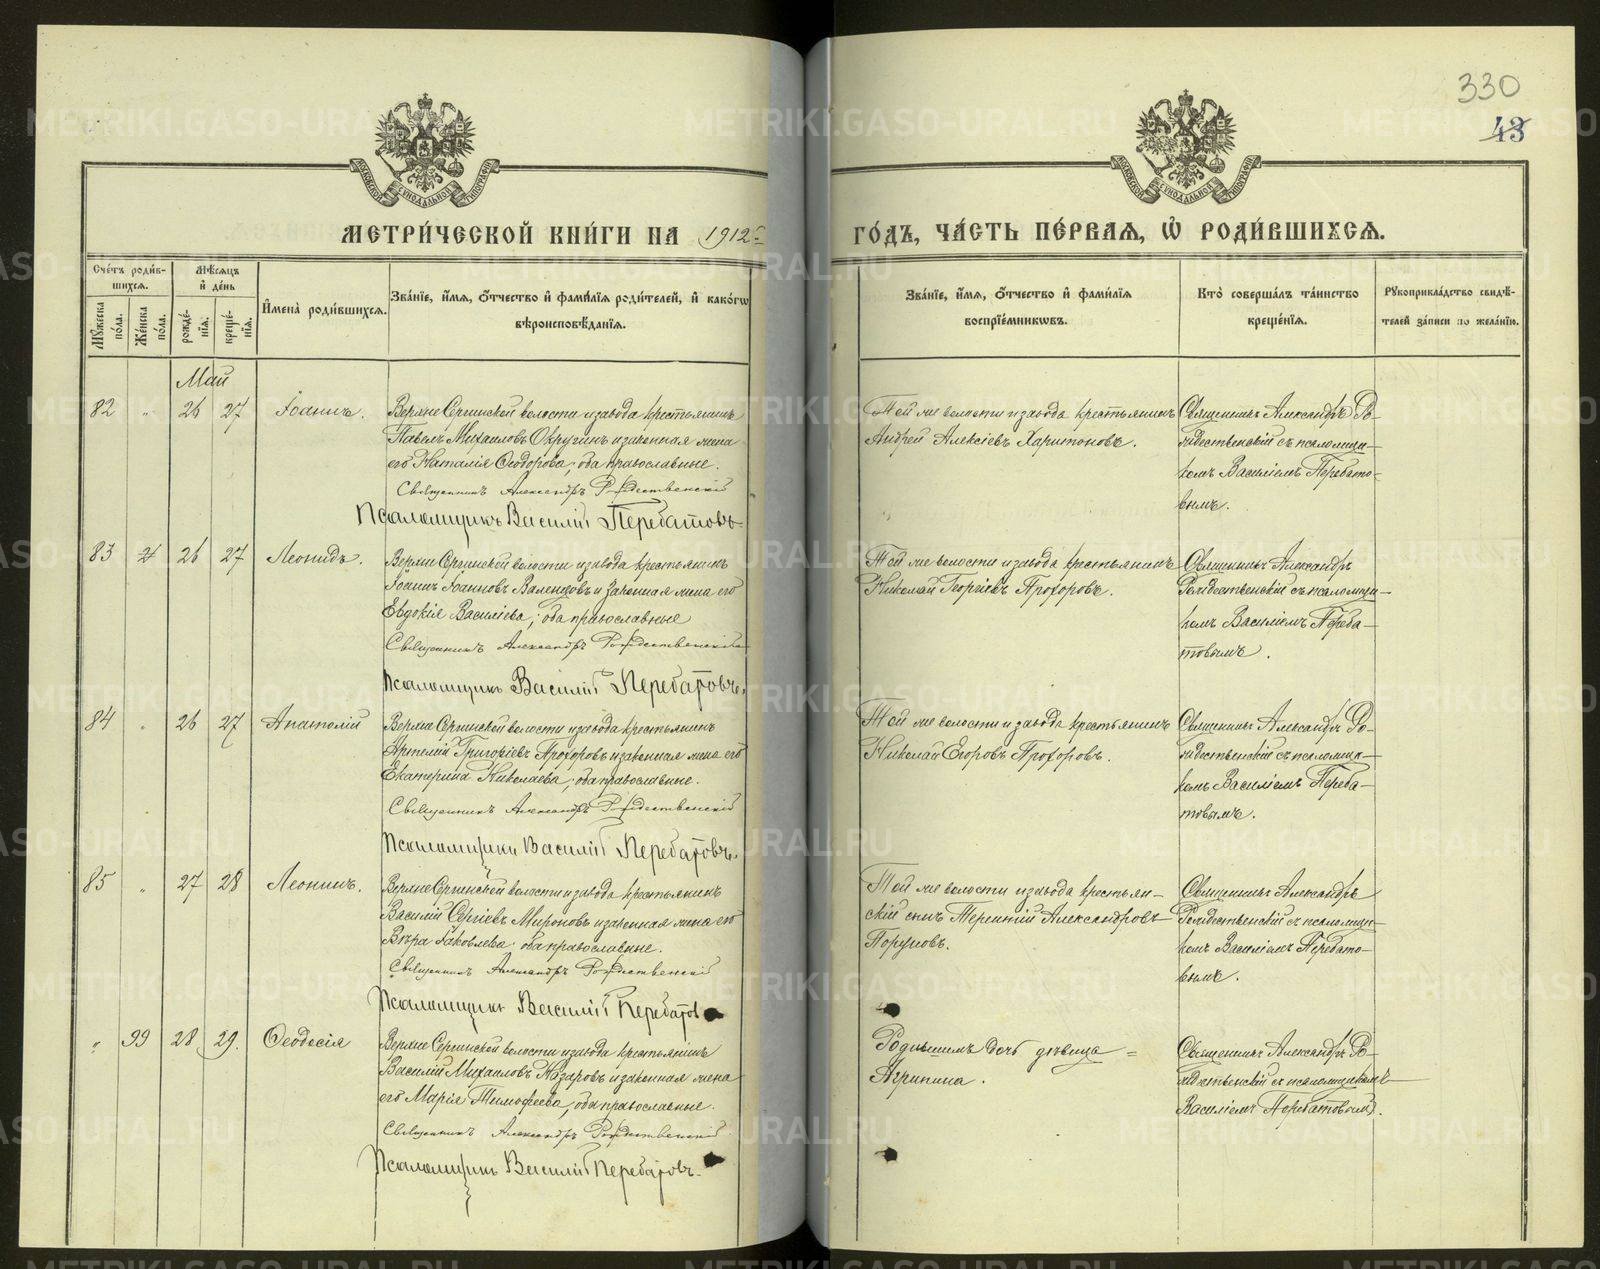 330
43
МЕТРИ́ЧЕСКОЙ КНИ́ГИ НА 1912 г
ГО́ДЪ, ЧА́СТЬ ПЕ́РВАЯ, Ѡ РОДИ́ВШИХСЯ.
Сче́тъ роди́в-
шихся.
Мѣ́сяцъ
и҆ де́нь
Мꙋ́жеска
по́ла.
Же́нска
по́ла.
рожде́-
нїя.
креще́-
нїя.
И҆мена̀ роди́вшихся.
Зва́нїе, и҆́мя, ѻ҆́тчество и҆ фами́лїя роди́телей, и҆ како́гѡ
вѣроисповѣ́данїя.
Зва́нїе, и҆́мя, ѻ҆́тчество и҆ фами́лїя
воспрїе́мникѡвъ.
Кто̀ соверша́лъ та́инство
креще́нїя.
Рꙋкоприкла́дство свидѣ́-
телей за́писи по жела́нїю.
Май
82 „ 26 27 Іоаннъ.
Верхне Сергинской волости и завода крестьянинъ
Павелъ Михаиловъ Округинъ и законная жена
его Наталія Ѳеодорова, оба православные.
Священникъ Александръ Рождественскій
Псаломщикъ Василій Перебатовъ
Той же волости и завода крестьянинъ
Андрей Алексіевъ Харитоновъ.
Священникъ Александръ Ро-
ждественскій съ псаломщи-
комъ Василіемъ Перебато-
вымъ.
83 26 27 Леонидъ.
Верхне Сергинской волости и завода крестьянинъ
Іоаннъ Іоанновъ Валенцовъ и законная жена его
Евдокія Василіева, оба православные
Священникъ Александръ Рождественскій
Псаломщикъ Василій Перебатовъ.
Той же волости и завода крестьянинъ
Николай Георгіевъ Прохоровъ.
Священникъ Александръ
Рождественскій съ псаломщи-
комъ Василіемъ Переба-
товымъ.
84 „ 26 27 Анатолій
Верхне Сергинской волости и завода крестьянинъ
Артемій Григоріевъ Прохоровъ и законная жена его
Екатерина Николаева, оба православные.
Священникъ Александръ Рождественскій
Псаломщикъ Василій Перебатовъ.
Той же волости и завода крестьянинъ
Николай Егоровъ Прохоровъ.
Священникъ Александръ Ро-
ждественскій съ псаломщи-
комъ Василіемъ Переба-
товымъ.
85 „ 27 28 Леонинъ.
Верхне Сергинской волости и завода крестьянинъ
Василій Сергіевъ Мироновъ и законная жена его
Вѣра Іаковлева, оба православные.
Священникъ Александръ Рождественскій
Псаломщикъ Василій Перебатов
Той же волости и завода крестьян-
скій сынъ Терентій Александровъ
Порумовъ.
Священникъ Александръ
Рождественскій съ псаломщи-
комъ Василіемъ Перебато-
вымъ.
„ 99 28 29. Ѳеодосія
Верхне Сергинской волости и завода крестьянинъ
Василій Михаиловъ Назаровъ и законная жена
его Марія Тимофеева, оба православные.
Священникъ Александръ Рождественскій
Псаломщикъ Василій Перебатовъ.
дочь дѣвица =
Агрипина.
Священникъ Александръ Ро-
ждественскій съ псаломщикомъ
Василіемъ Перебатовымъ.
METRIKI.GASO-URAL.RU